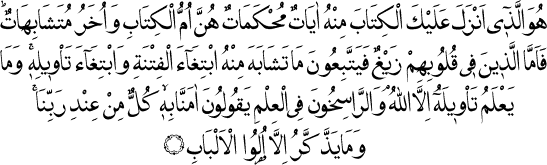 هُوَ الَّذ۪ٓي اَنْزَلَ عَلَيْكَ الْكِتَابَ مِنْهُ اٰيَاتٌ مُحْكَمَاتٌ هُنَّ اُمُّ الْكِتَابِ وَاُخَرُ مُتَشَابِهَاتٌۜ
فَاَمَّا الَّذ۪ينَ ف۪ي قُلُوبِهِمْ زَيْغٌ فَيَتَّبِعُونَ مَا تَشَابَهَ مِنْهُ ابْتِغَٓاءَ الْفِتْنَةِ وَابْتِغَٓاءَ تَأْو۪يلِه۪ۚ وَمَا
يَعْلَمُ تَأْو۪يلَهُٓ اِلَّا اللّٰهُۢ وَالرَّاسِخُونَ فِي الْعِلْمِ يَقُولُونَ اٰمَنَّا بِه۪ۙ كُلٌّ مِنْ عِنْدِ رَبِّنَاۚ
وَمَا يَذَّكَّرُ اِلَّٓا اُو۬لُوا الْاَلْبَابِ